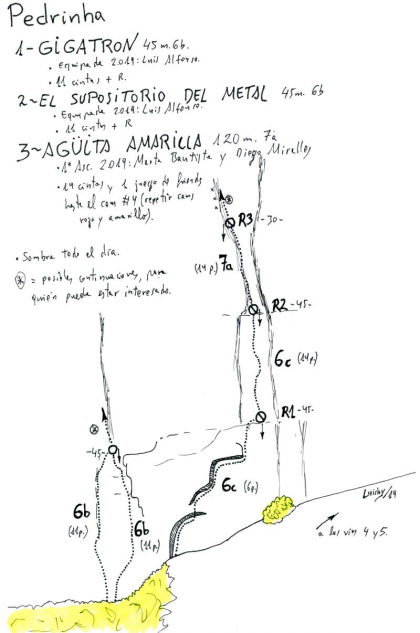 Pedrinha
1- GIGATRON 45 m. 6b.
• Equipada 2019: Luis Alfonso.
• 11 cintas + R.
2~EL SUPOSITORIO DEL METAL 45m. 6b
• Equipada 2019: Luis Alfonso.
• 11 cintas + R
3~AGÜITA AMARILLA 120 m. 7a
• 1ª Asc. 2019: Marta Bautista y Diego Miralles
• 14 cintas y 1 juego de friends
hasta el cam #4 (repetir cams
rojo y amarillo).
• Sombra todo el día.
* = posibles continuaciones, para
quién pueda estar interesado.
*
R3 -30-
7a
(14 p.)
R2 -45-
6c
(14p.)
R1 -45-
*
-45-
6c (6p.)
6b
(11p.)
6b
(11p.)
/19
a las vías 4 y 5.